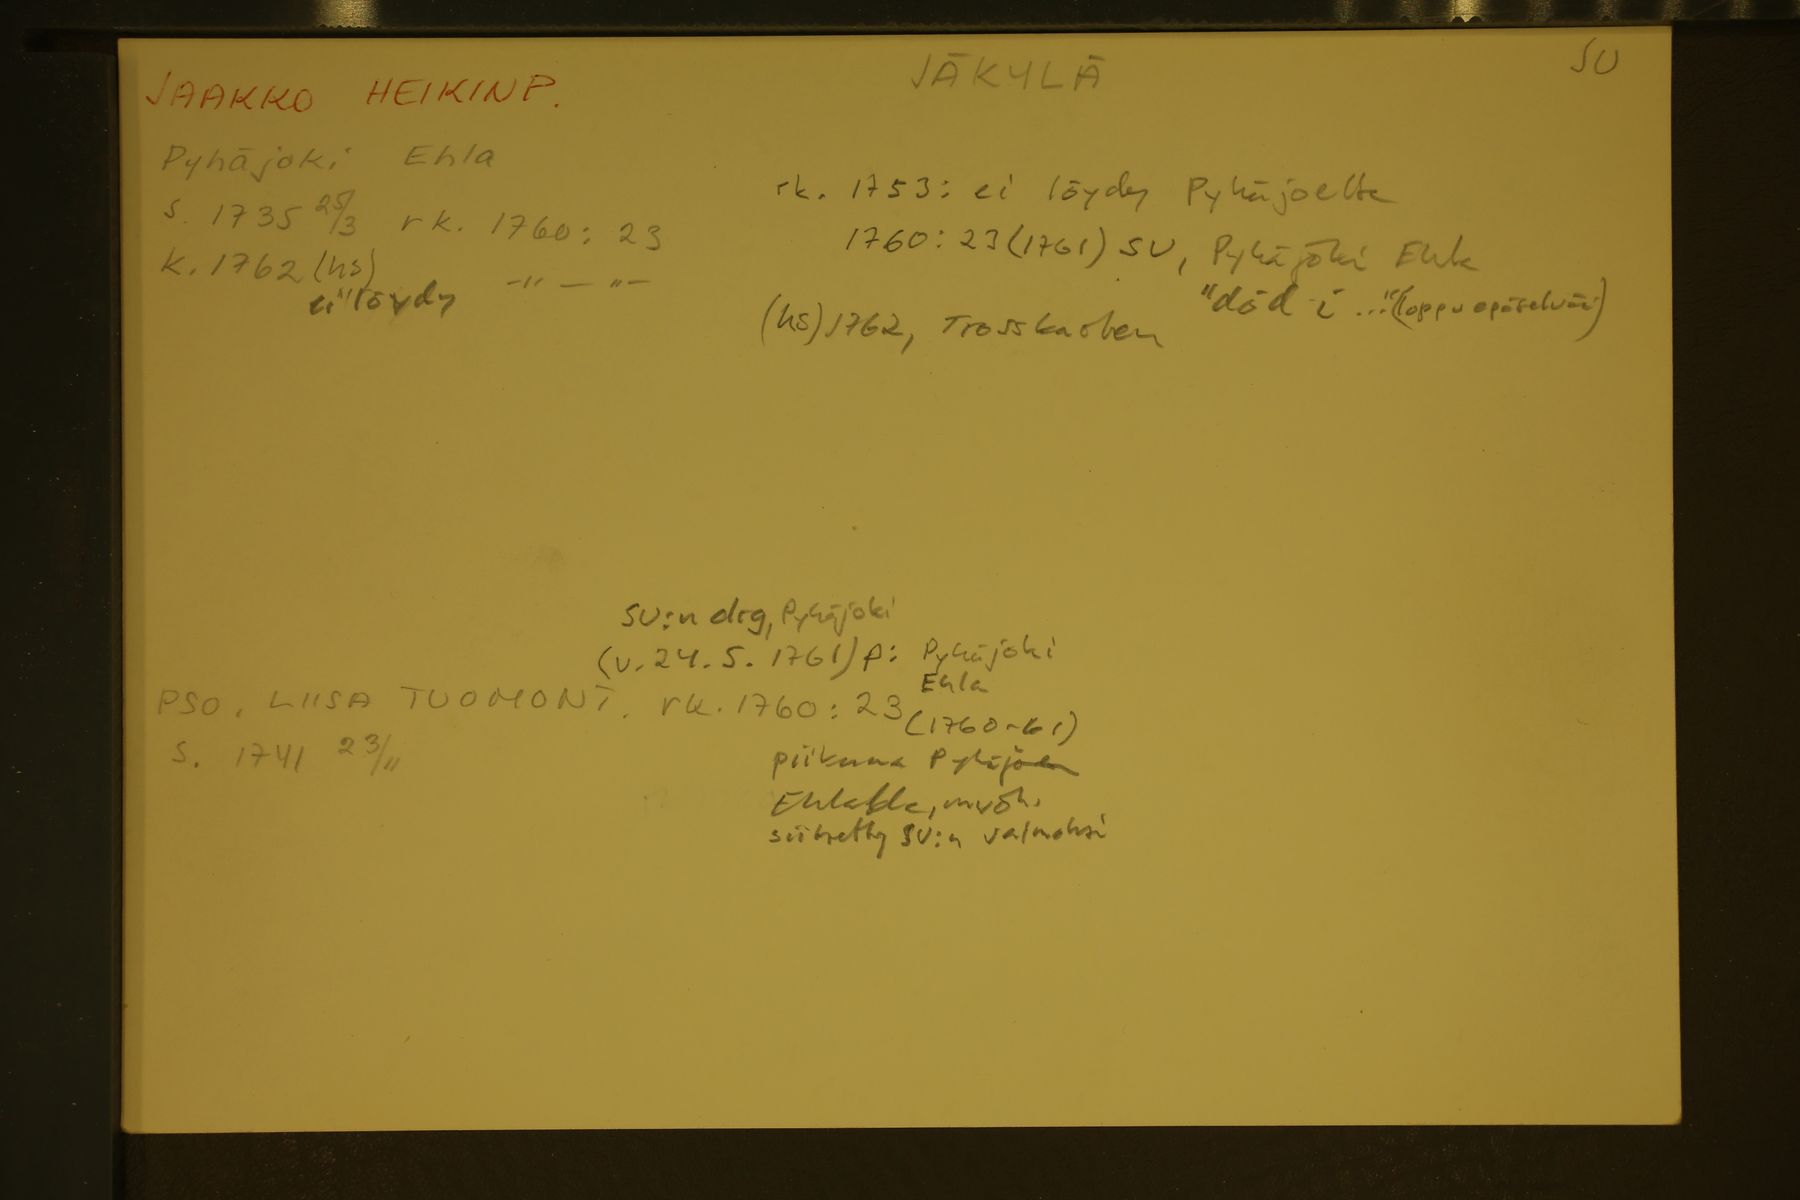 JAAKKO HEIKINP.
JÄKYLÄ
SU
Pyhäjoki Ehla
s. 1735 25/3 rk. 1760: 23
k. 1762 (hs) -"- -"-
ei löydy
rk. 1753: ei löydy Pyhäjoelta
1760: 23 (1761) SU, Pyhäjoki Ehla
"död i ..." (loppu epäselvää)
(hs) 1762, Trosskarlen
SU:n drg, Pyhäjoki
(v. 24.5. 1761) p: Pyhäjoki
Ehla
PSO. LIISA TUOMONT. rk. 1760: 23
(1760-61)
s. 1741 23/11
piikana Pyhäjoen
Ehlalla, myöh.
siirretty SU:n vaimoksi